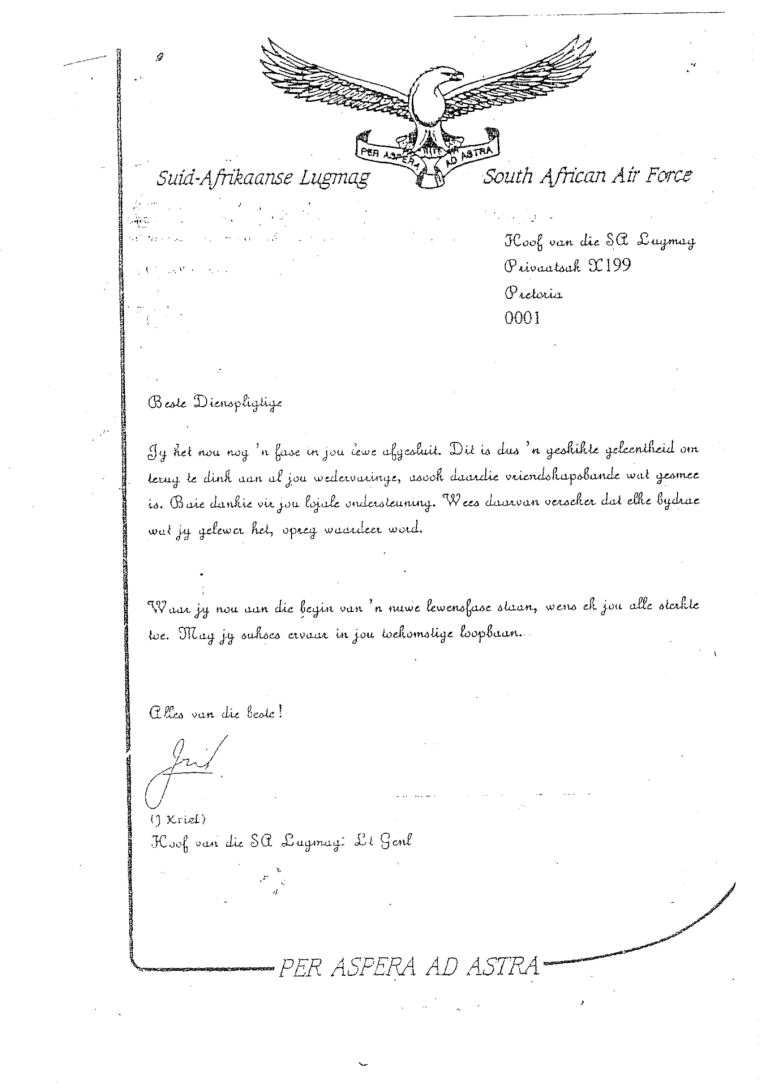 PER ASPERA AD ASTRA
Suid-Afrikaanse Lugmag
South African Air Force
Hoof van die SA Lugmag
Privaatsak X199
Pretoria
0001
Beste Dienspligtige
Jy het nou nog 'n fase in jou lewe afgesluit. Dit is dus 'n geskikte geleentheid om
terug te dink aan al jou wedervaringe, asook daardie vriendskapsbande wat gesmee
is. Baie dankie vir jou lojale ondersteuning. Wees daarvan verseker dat elke bydrae
wat jy gelewer het, opreg waardeer word.
Waar jy nou aan die begin van 'n nuwe lewensfase staan, wens ek jou alle sterkte
toe. Mag jy sukses ervaar in jou toekomstige loopbaan.
Alles van die beste!
(J Kriel)
Hoof van die SA Lugmag: Lt Genl
PER ASPERA AD ASTRA